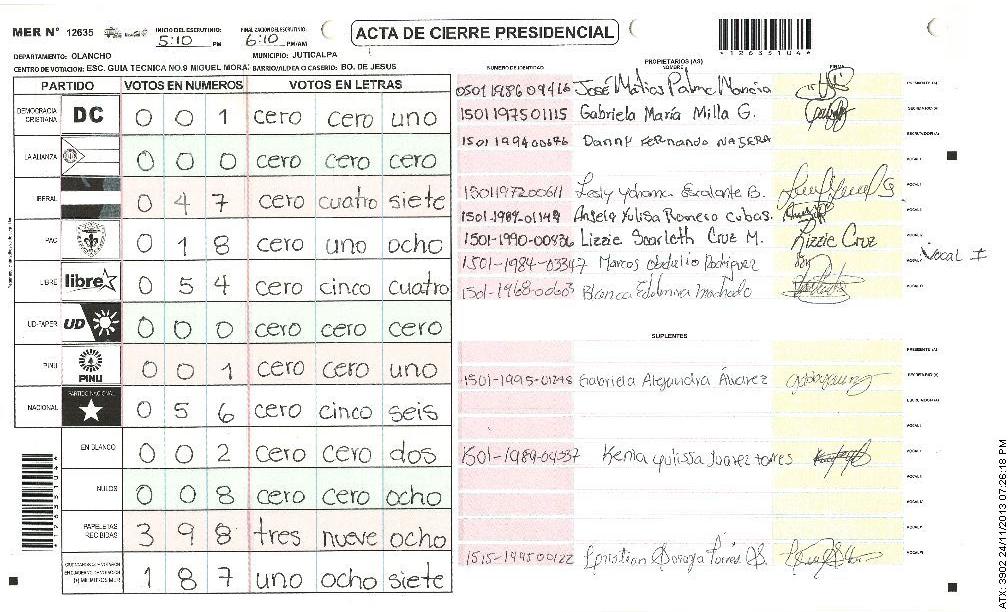 MER N° 12635
INICIO DEL ESCRUTINIO: 5:10 PM
FINALIZACION DEL ESCRUTINIO: 6:10 PM/AM
ACTA DE CIERRE PRESIDENCIAL
1263504
DEPARTAMENTO: OLANCHO MUNICIPIO: JUTICALPA
CENTRO DE VOTACION: ESC. GUIA TECNICA NO.9 MIGUEL MORA BARRIO/ALDEA O CASERIO: BO. DE JESUS
PARTIDO VOTOS EN NUMEROS VOTOS EN LETRAS
DEMOCRACIA CRISTIANA DC 0 0 1 cero cero uno
LA ALIANZA 0 0 0 cero cero cero
LIBERAL 0 4 7 cero cuatro siete
PAC 0 1 8 cero uno ocho
LIBRE libre 0 5 4 cero cinco cuatro
UD-FAPER UD 0 0 0 cero cero cero
PINU PINU 0 0 1 cero cero uno
NACIONAL PARTIDO NACIONAL 0 5 6 cero cinco seis
EN BLANCO 0 0 2 cero cero dos
NULOS 0 0 8 cero cero ocho
PAPELETAS RECIBIDAS 3 9 8 tres nueve ocho
1 8 7 uno ocho siete
NUMERO DE IDENTIDAD PROPIETARIOS (AS) NOMBRE FIRMA
0501 1986 09416 José Matias Palma PRESIDENTE (A)
1501197501115 Gabriela María Milla G. SECRETARIO (A)
1501 1994 00676 Danny Fernando Najera ESCRUTADOR (A)
VOCAL I
1501197200611 Lesly Yohana Escalante B. VOCAL
1501-1989-01149 Angela Yulisa Romero Cubas. VOCAL
1501-1990-00836 Lizzie Scarleth Cruz M. Lizzie Cruz VOCAL
1501-1984-03347 Marcos Obdulio Rodriguez VOCAL Vocal I
1501-1968-00603 Blanca Edelmira Machado VOCAL
SUPLENTES
PRESIDENTE (A)
1501-1995-01248 Gabriela Alejandra Álvarez SECRETARIO (A)
ESCRUTADOR (A)
VOCAL I
1501-1989-04337 Kenia Yulissa Juarez torres VOCAL
VOCAL
VOCAL
VOCAL
1515-1995 00122 VOCAL
1263504
ATX: 3902 24/11/2013 07:26:18 PM